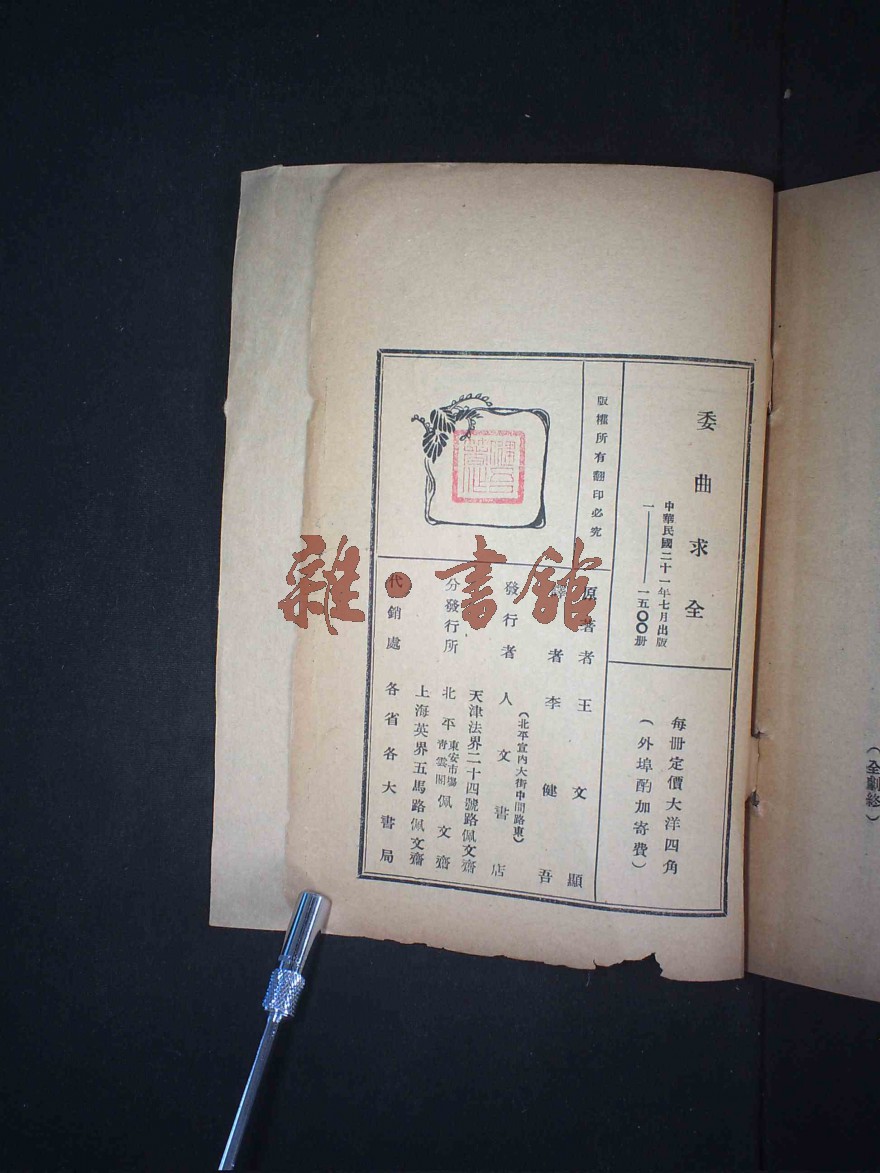 (全劇終)
委曲求全
中華民國二十一年七月出版
一——一五〇〇册
每册定價大洋四角
(外埠酌加寄費)
版權所有翻印必究
原著者 王文顯
譯者 李健吾
發行者 人文書店
(北平宣內大街中間路東)
分發行所
天津法界二十四號路佩文齋
北平 東安市場 青雲閣 佩文齋
上海英界五馬路佩文齋
代銷處 各省各大書局
雜·書館